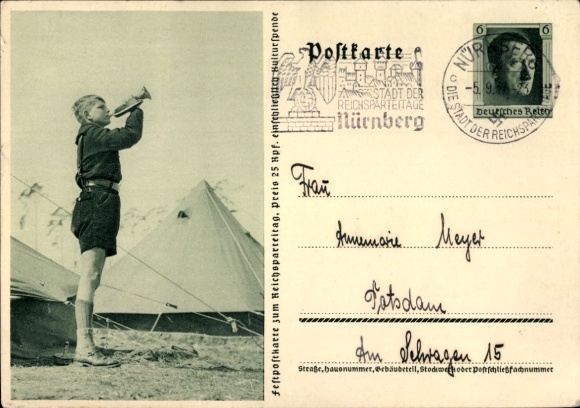 Postkarte
STADT DER
REICHSPARTEITAGE
Nürnberg
NÜRNBERG
-5.9.
DIE STADT DER REICHSPARTEITAGE
6 6
Deutsches Reich
Festpostkarte zum Reichsparteitag. Preis 25 Rpf. einschließlich Kulturspende
Frau
Annemarie Meyer
Potsdam
Am Schragen 15
Straße, Hausnummer, Gebäudeteil, Stockwerk oder Postschließfachnummer